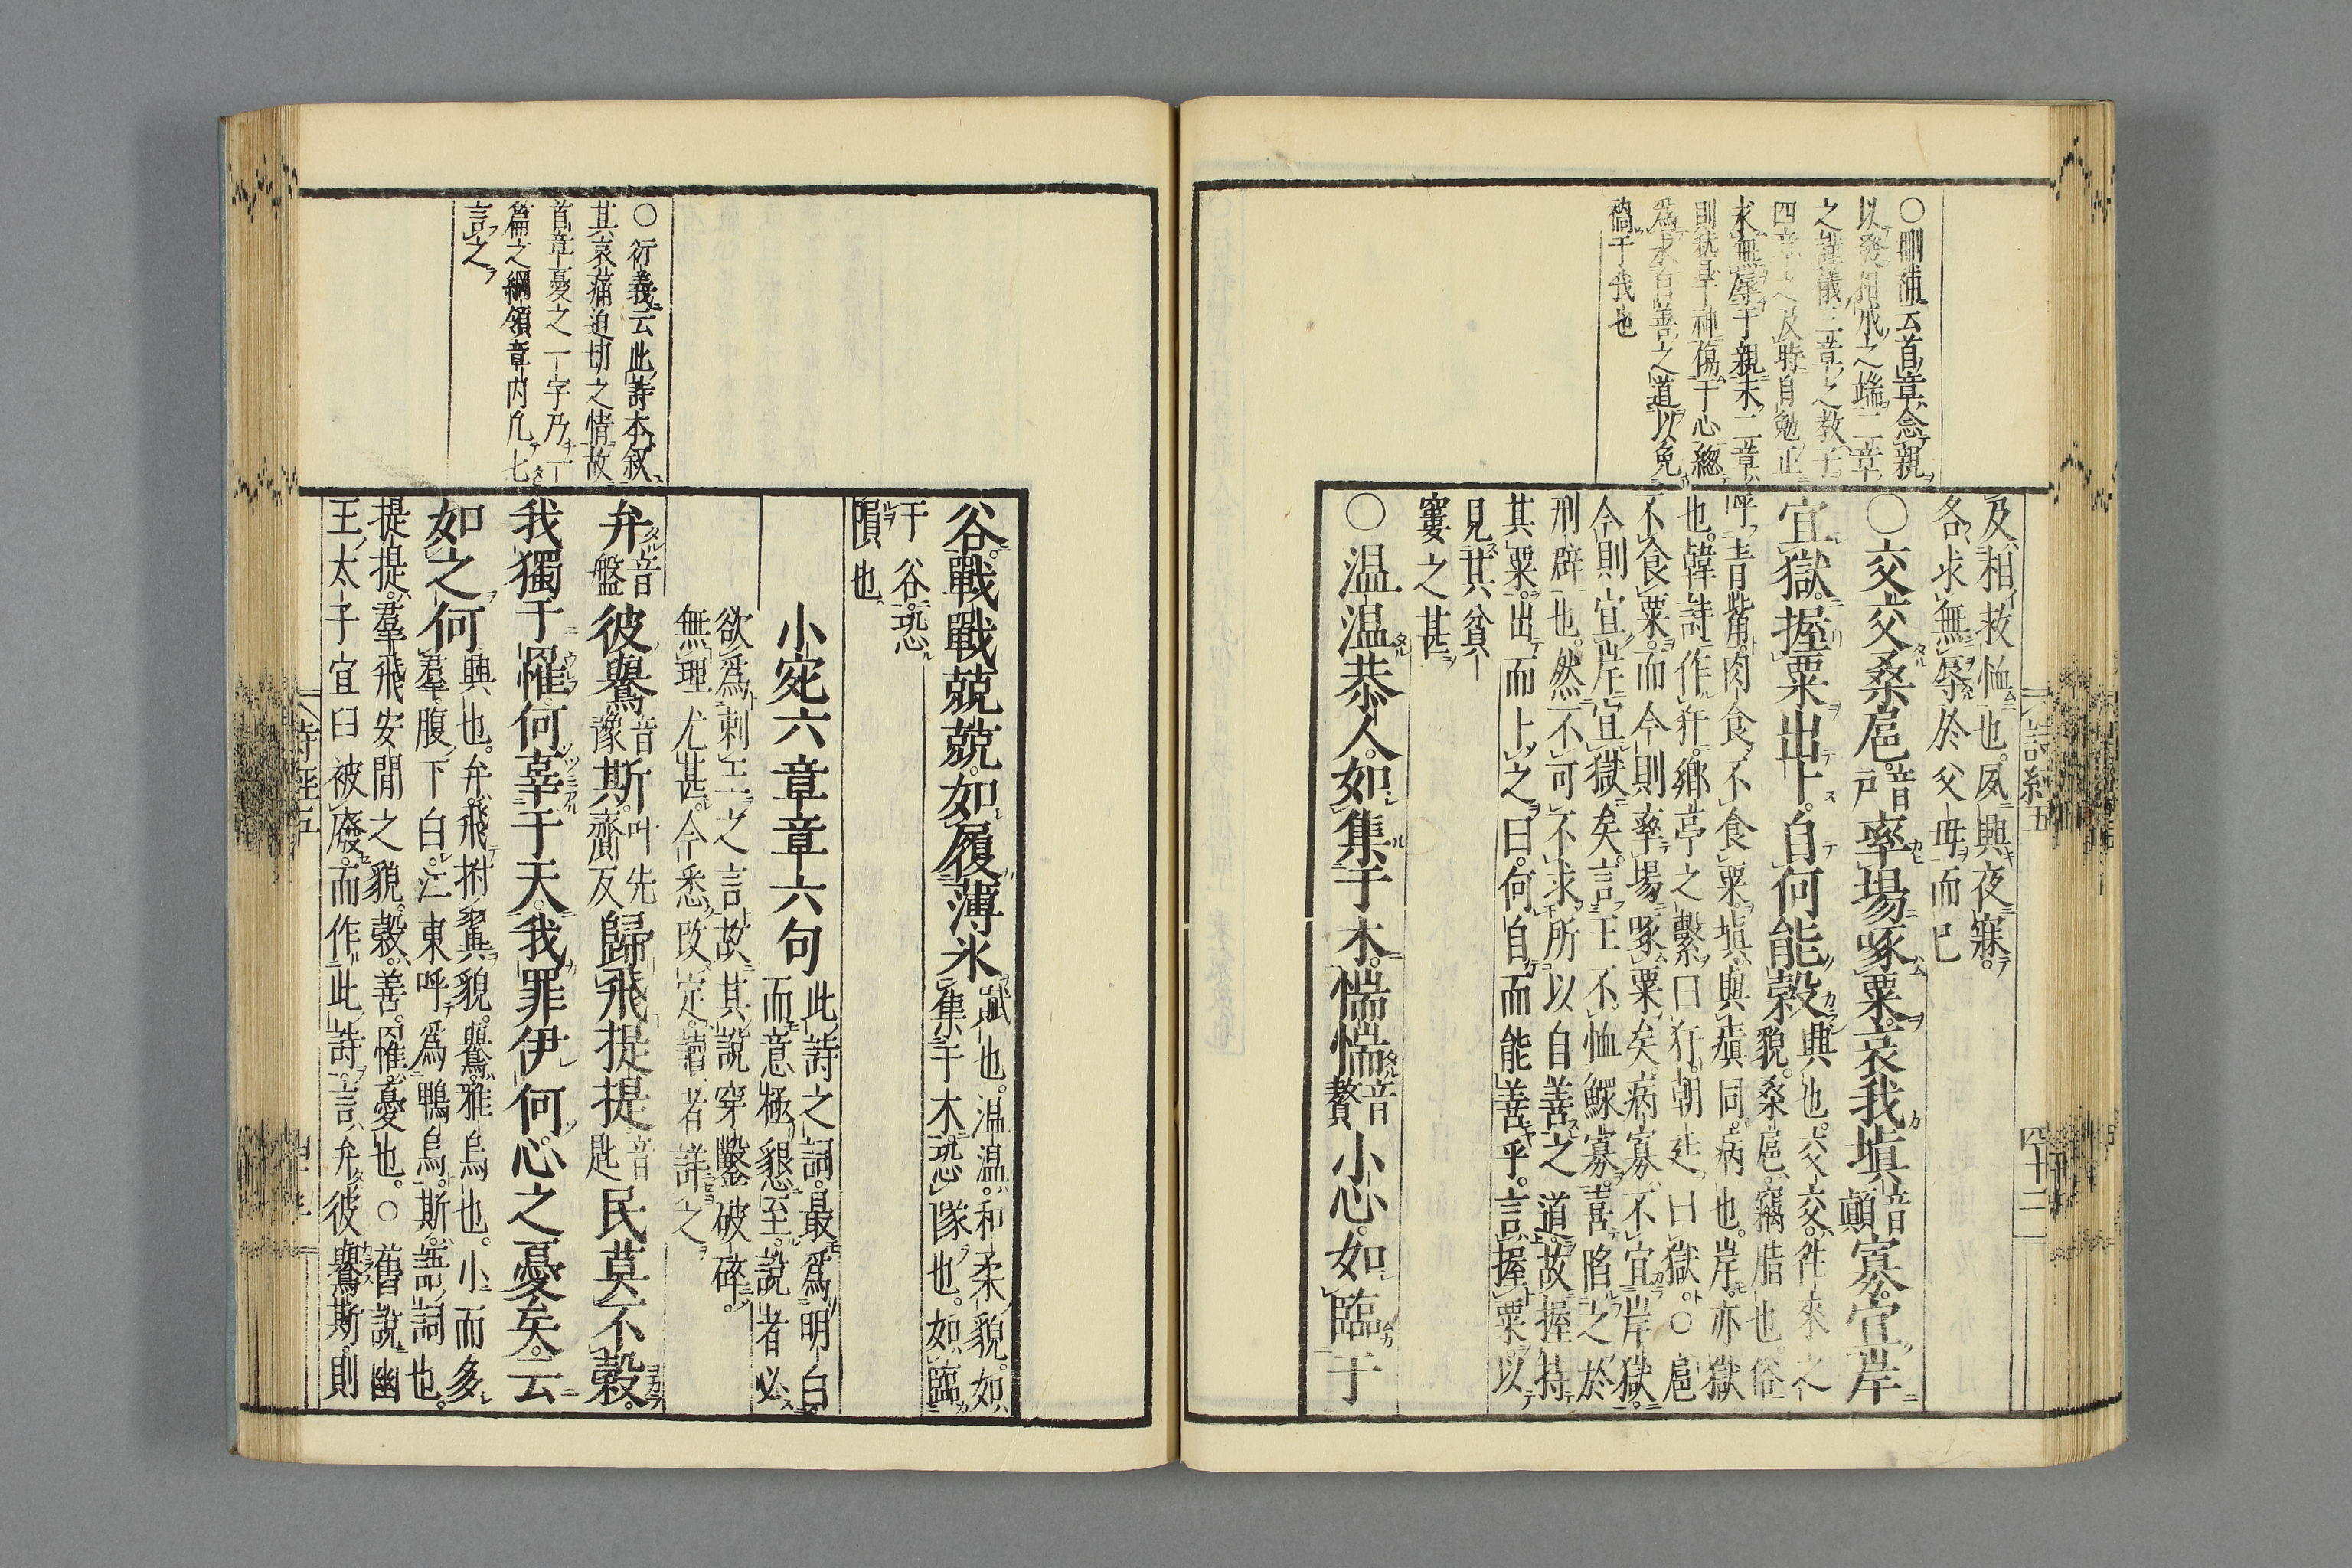 ○刪補云首章念親
以發相戒之端二章
之謹儀三章之教子
四章之及時自勉正
求無辱于親末二章
則致旱神傷于心總
爲求自善之道以免
禍于我也
詩經五
四十三
及相救恤也。夙興夜寐。
各求無辱於父母而已
○交交桑扈。音戶率場啄粟。哀我塡音顚寡。宜岸
宜獄。握粟出卜。自何能穀興也。交交。往來之
貌。桑扈。竊脂也。俗
呼靑觜。肉食不食粟。塡與瘨同。病也。岸。亦獄
也。韓詩作犴。鄉亭之繫曰犴。朝廷曰獄。○扈
不食粟。而今則率場啄粟矣。病寡不宜岸獄。
今則宜岸宜獄矣。言王不恤鰥寡。喜陷之於
刑辟也。然不可不求所以自善之道。故握持
其粟。出而卜之曰。何自而能善乎。言握粟。以
見其貧
窶之甚
○溫溫恭人。如集于木。惴惴音贅小心。如臨于
谷。戰戰兢兢。如履薄冰賦也。溫溫。和柔貌。如
集于木。恐隊也。如臨
于谷。恐
隕也
小宛六章章六句此詩之詞。最爲明白。
而意極懇至。說者必
欲爲刺王之言。故其說穿鑿破碎。
無理尤甚。今悉改定。讀者詳之
○衍義云此詩本叙
其哀痛迫切之情故
首章憂之一字乃一
篇之綱領章內凡七
言之
弁音盤彼鸒音豫斯。叫先齎反歸飛提提音匙民莫不穀。
我獨于罹。何辜于天。我罪伊何。心之憂矣。云
如之何興也。弁。飛拊翼貌。鸒。雅烏也。小而多
羣。腹下白。江東呼爲鴨烏。斯。語詞也。
提提。羣飛安閒之貌。穀。善。罹。憂也。○舊說幽
王太子宜臼被廢。而作此詩。言弁彼鸒斯。則